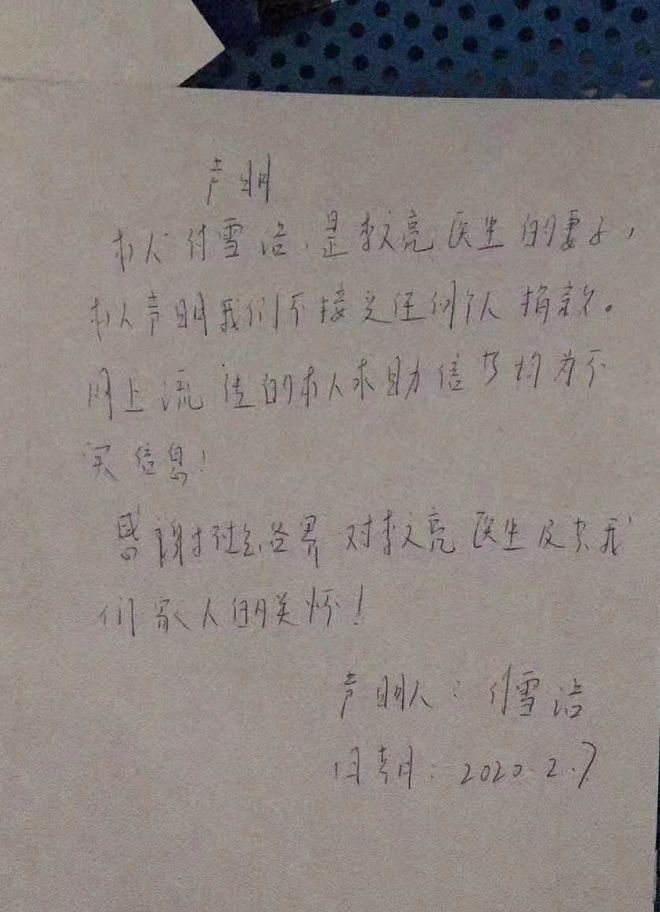 声明
本人付雪洁,是李文亮医生的妻子,
本人声明我们不接受任何个人捐款。
网上流传的本人求助信息均为不
实信息!
感谢社会各界对李文亮医生及其我
们家人的关怀!
声明人:付雪洁
日期:2020.2.7